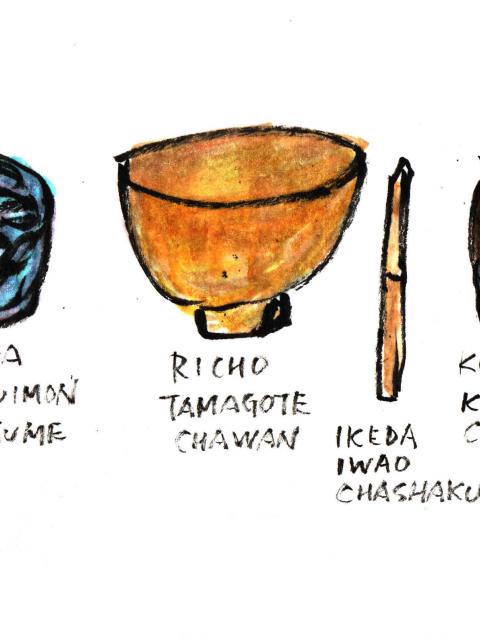 A
UIMON
UME
RICHO
TAMAGOTE
CHAWAN
IKEDA
IWAO
CHASHAKU
K
K
C